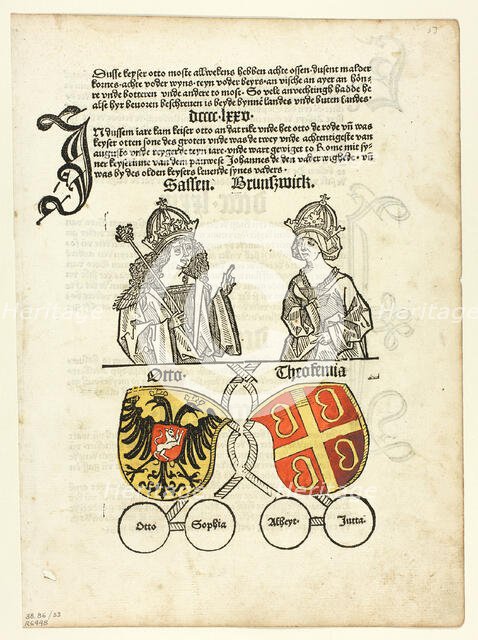 17
Dusse keyser otto moste allwekens hebben achte ossen dusent malder
kornes achte voder wyns teyn voder beyrs an vische an ayer an hön-
re vnde botteren vnde andere to most So vele anvechtingh hadde he
alse hyr bevoren beschreven is beyde bynne landes vnde buten landes
dcccc lxxv
IN dussem iare kam keiser otto an dat rike vnde het otto de rode vn was
keyser otten sone des groten vnde was de twey vnde achtentigeste van
augusto vnde regerede teyn iare vnde wart gewiget to Rome mit sy-
ner keyserinne van dem pauwese Johannes de den vader wighede vn
was by des olden keysers levende synes vaders
Sassen. Brunszwick.
Heritage Heritage
Otto Theofemia
Otto Sophia Alheyt Jutta
38.86/33
R6448